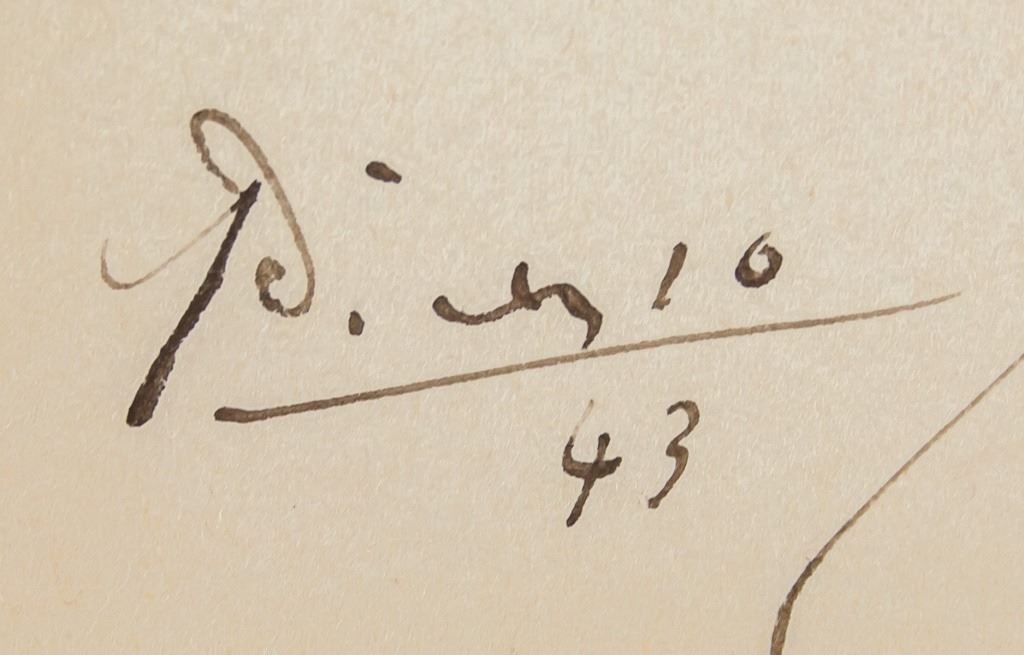 Picasso
43